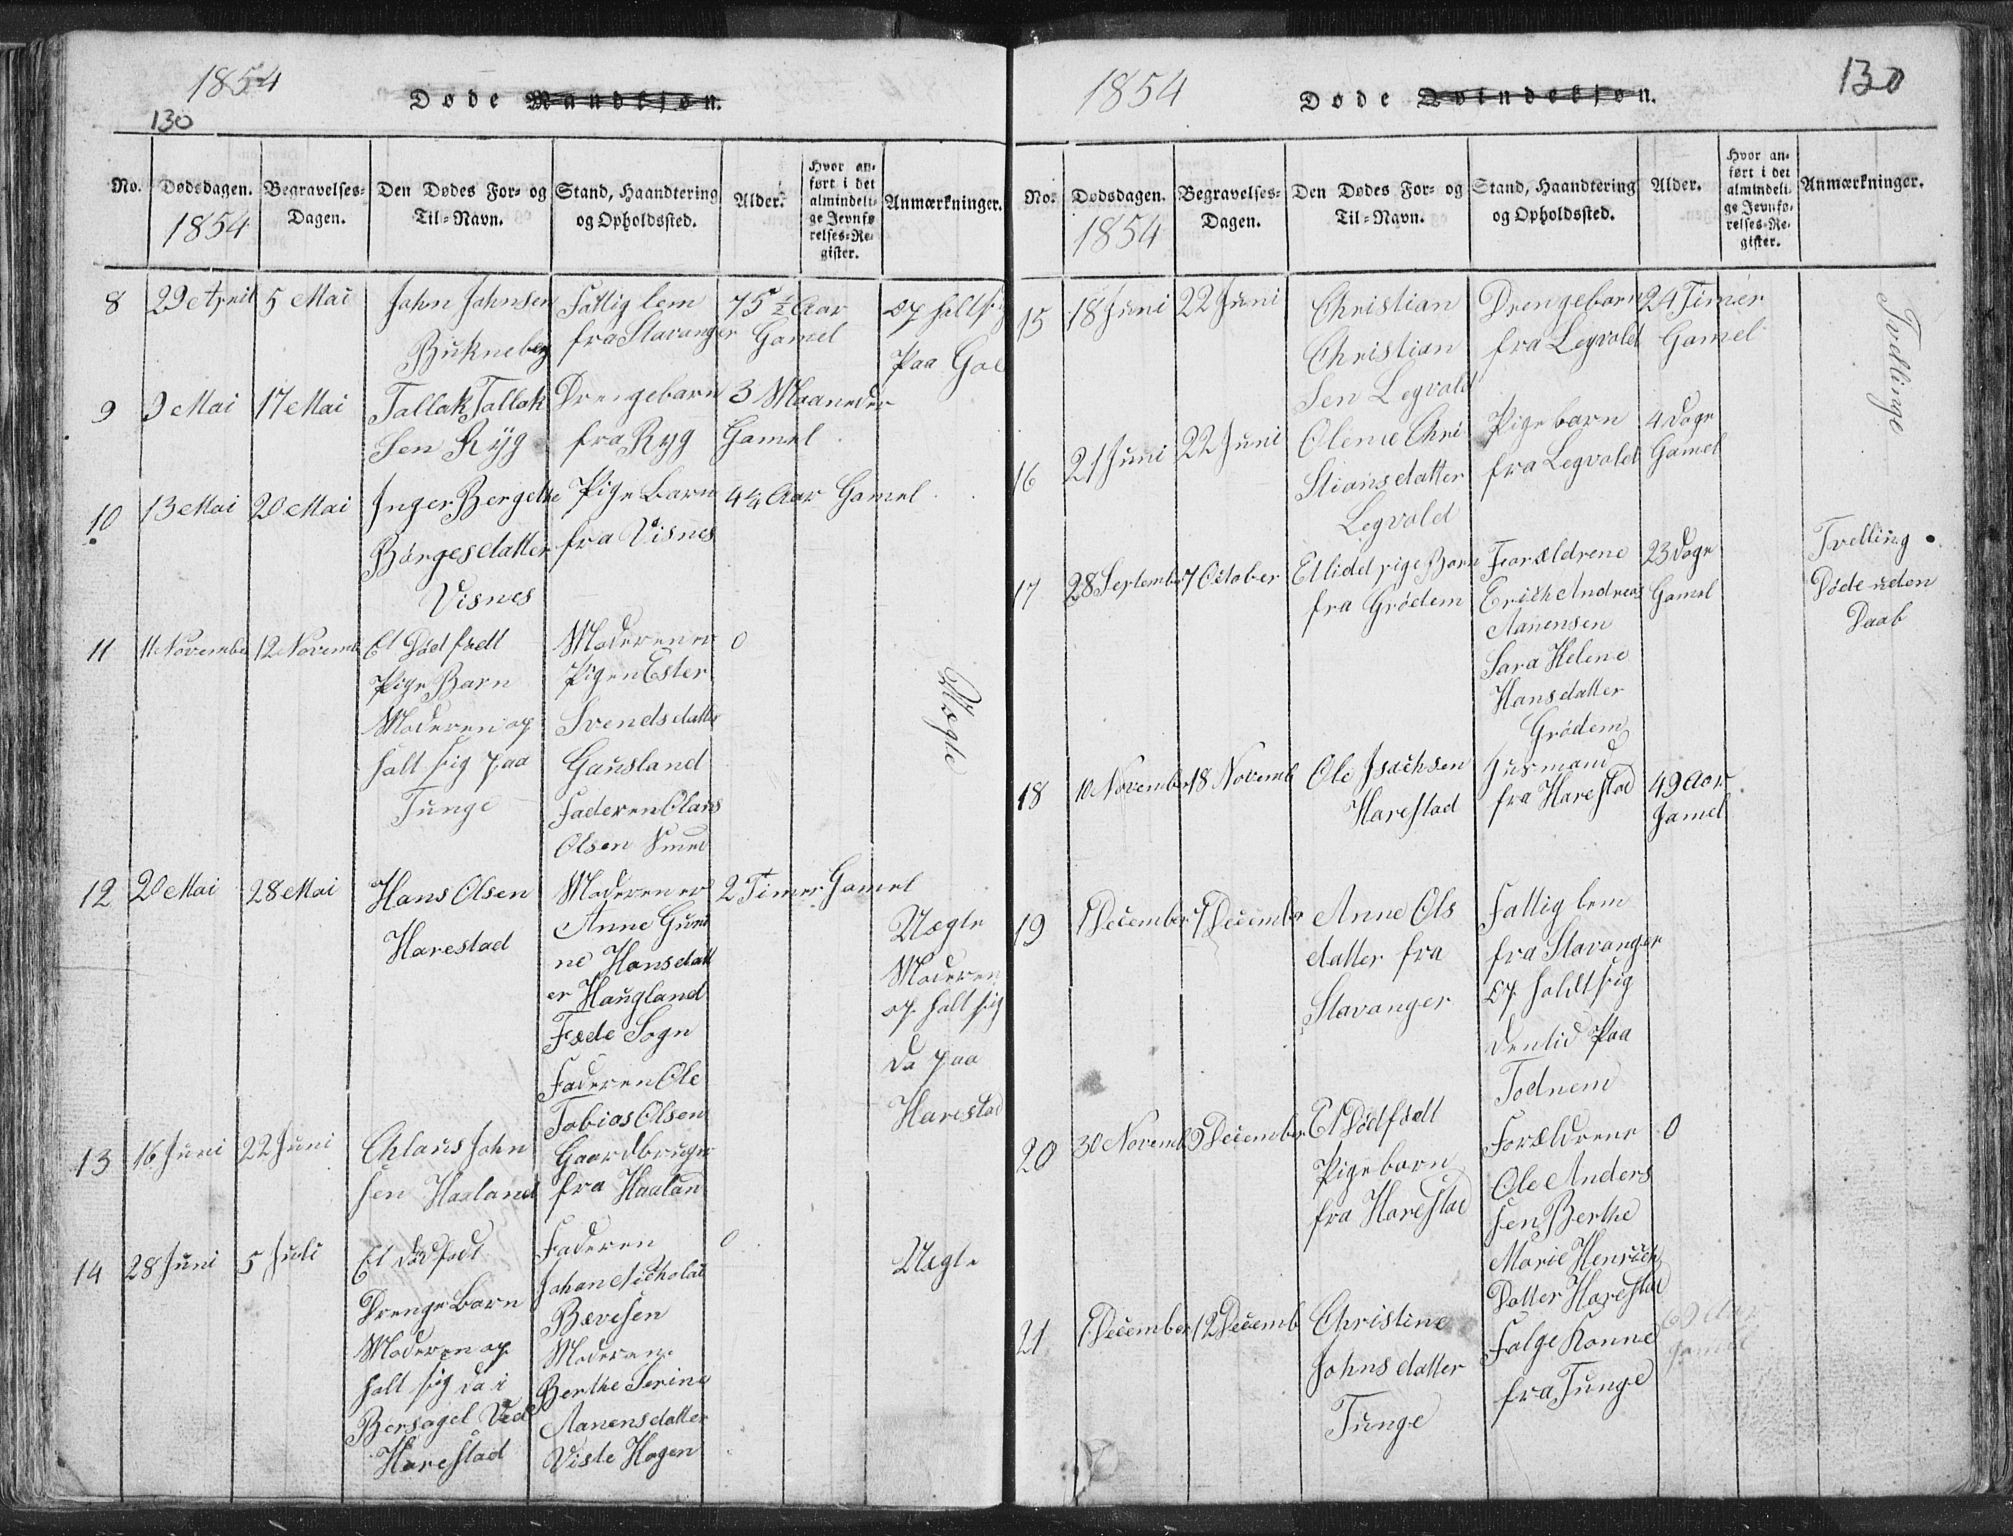 1854
130
Døde Mandkjøn.
No.
Dødsdagen.
1854
Begravelses-
Dagen.
Den Dødes For- og
Til-Navn.
Stand, Haandtering
og Opholdssted.
Alder.
Hvor an-
ført i det
almindeli-
ge Jevnfø-
relses-Re-
gister.
Anmærkninger.
8
29 April
5 Mai
John Johnsen
Bukneberg
Fattig lem
fra Stavanger
75 ½ Aar
Gamel
op holt sig
Paa Goe
9
9 Mai
17 Mai
Tallak Tallak
Sen Ryg
Drengebarn
fra Ryg
3 Maaneder
Gamel
10
13 Mai
20 Mai
Inger Bergete
Børgesdatter
Visnes
Pige Barn
fra Visnes
4¼ Aar Gamel
11
11 November
12 Novemb
Et Dødfødt
Pige Barn
Moderen op
halt sig paa
Tunge
Moderen er
Pigen Ester
Svendsdatter
Gausland
Faderen Olaus
Olsen Smed
0
Uægte
12
20 Mai
28 Mai
Hans Olsen
Harestad
Moderen er
Anne Guni
ne Hansdatt
er Haugland
Fæde Sogn
Faderen Ole
Tobias Olsen
2 Timer Gamel
Uægte
Moderen
op halt sig
da paa
Harestad
13
16 Juni
22 Juni
Chlaus John
sen Haaland
Gaardbruger
fra Haalan
14
28 Juni
5 Juli
Et dødfødt
Drenge Barn
Moderen op
halt sig da i
Bersagel Ved
Harestad
Faderen
Johan Nicholai
Bævesen
Moderen
Berthe Serine
Aanensdatter
Viste Hagen
0
Uægte
1854
130
Døde Qvindekjøn.
No.
Dødsdagen.
1854
Begravelses-
Dagen.
Den Dødes For- og
Til-Navn.
Stand, Haandtering
og Opholdssted.
Alder.
Hvor an-
ført i det
almindeli-
ge Jevnfø-
relses-Re-
gister.
Anmærkninger.
15
18 Juni
22 Juni
Christian
Christian
Sen Legvold
Drengebarn
fra Legvold
24 Timer
Gamel
Tvellinge
16
21 Juni
22 Juni
Olene Chri
Stiansdatter
Legvold
Pigebarn
fra Legvold
4 dage
Gamel
17
28 September
7 October
Et lidet pige Barn
fra Grødem
Forældrene
Erich Andreas
Aanensen
Sara Helene
Hansdatter
Grødem
23 dage
Gamel
Tvelling
Døde uden
Daab
18
10 November
18 Novemb
Ole Isachsen
Harestad
Husmand
fra Harestad
49 Aar
Gamel
19
1 December
7 Decembr
Anne Ols
datter fra
Stavanger
Fattig lem
fra Stavanger
op holdt sig
den tid Paa
Todnem
20
30 Novemb
5 December
Et Dødfødt
Pige barn
fra Harestad
Forældrene
Ole Anders
sen Berthe
Marie Henrich
Datter Harestad
0
21
6 December
12 Decemb
Christine
Johnsdatter
Tunge
Folge Konne
fra Tunge
69 Aar
Gamel